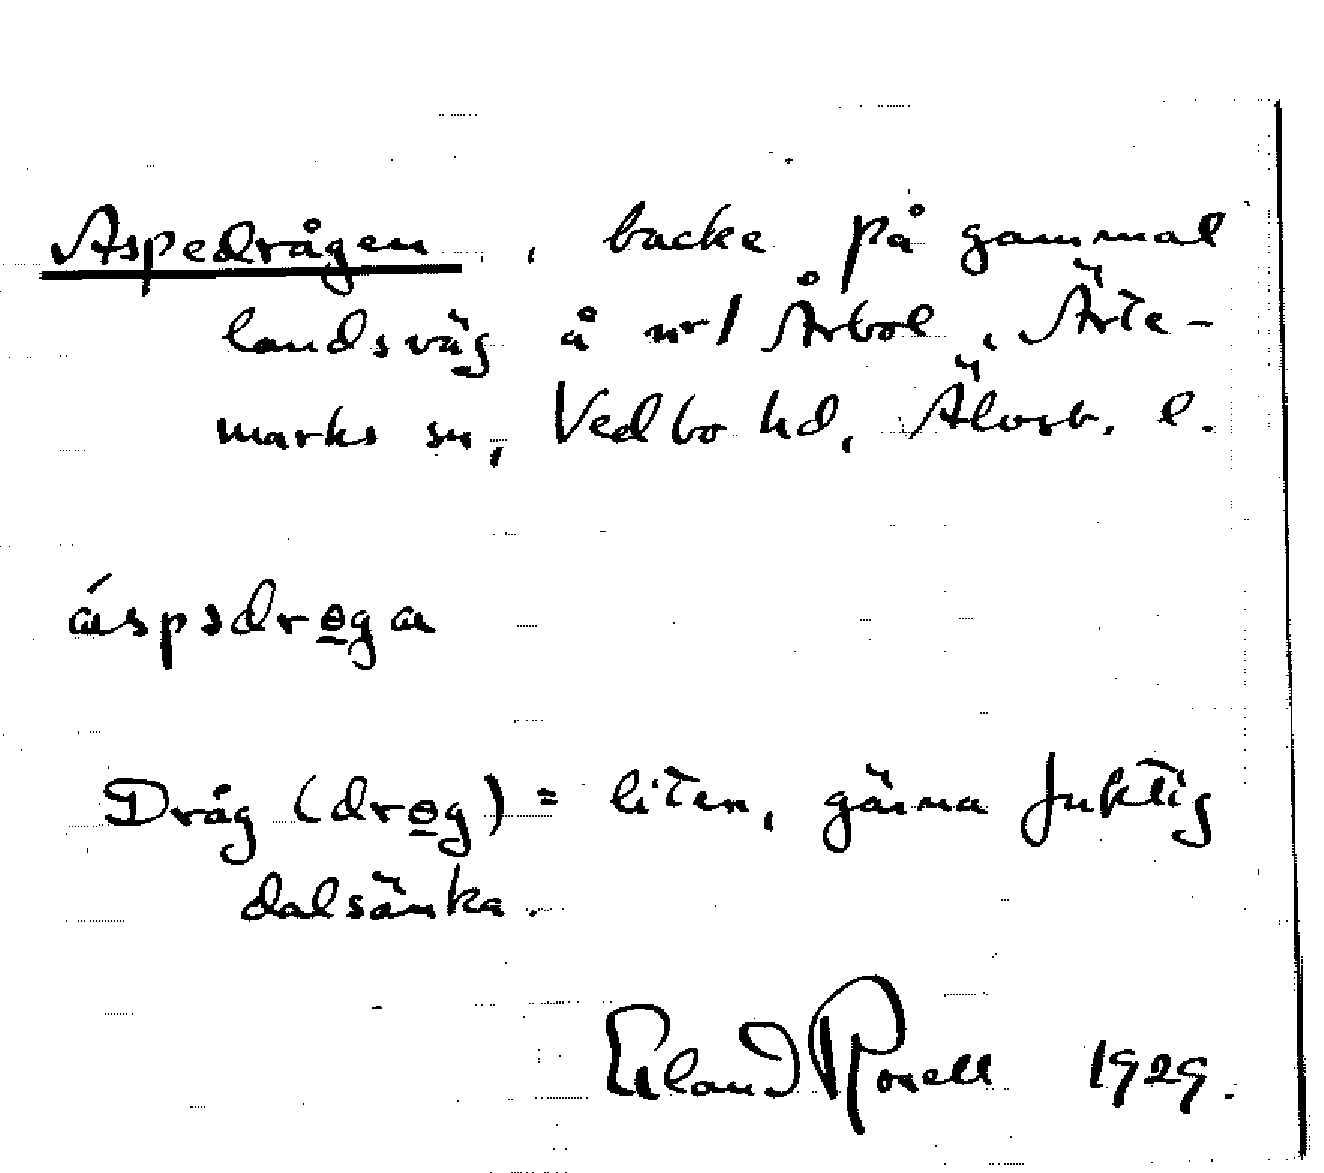 Aspedrågen, backe på gammal
landsväg å nr 1 Årbol, Ärte-
marks sn, Vedbo hd, Älvsb. l.
áspədrɵ̠ga
Dråg (drɵ̠g) = liten, gärna fuktig
dalsänka.
Erland Rosell 1929.